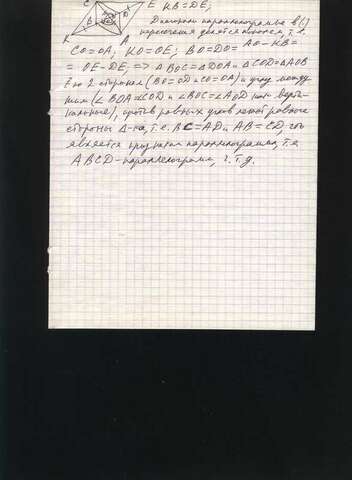 C E KB=DE;
B D
Диагонали параллелограмма в ( )
пересечения делятся пополам, т.е.
K A
CO=OA; KO=OE; BO=DO=
= OE-DE. => ΔBOC=ΔDOA и ΔCOD=ΔAOB
по 2 сторонам (BO=OD и CO=OA) и углу между
ними (∠BOA=∠COD и ∠BOC=∠AOD как верти-
кальные), против равных углов лежат равные
стороны Δ-ка, т.е. BC=AD и AB=CD, что
является признаком параллелограмма, т.е.
ABCD-параллелограмм, ч.т.д.